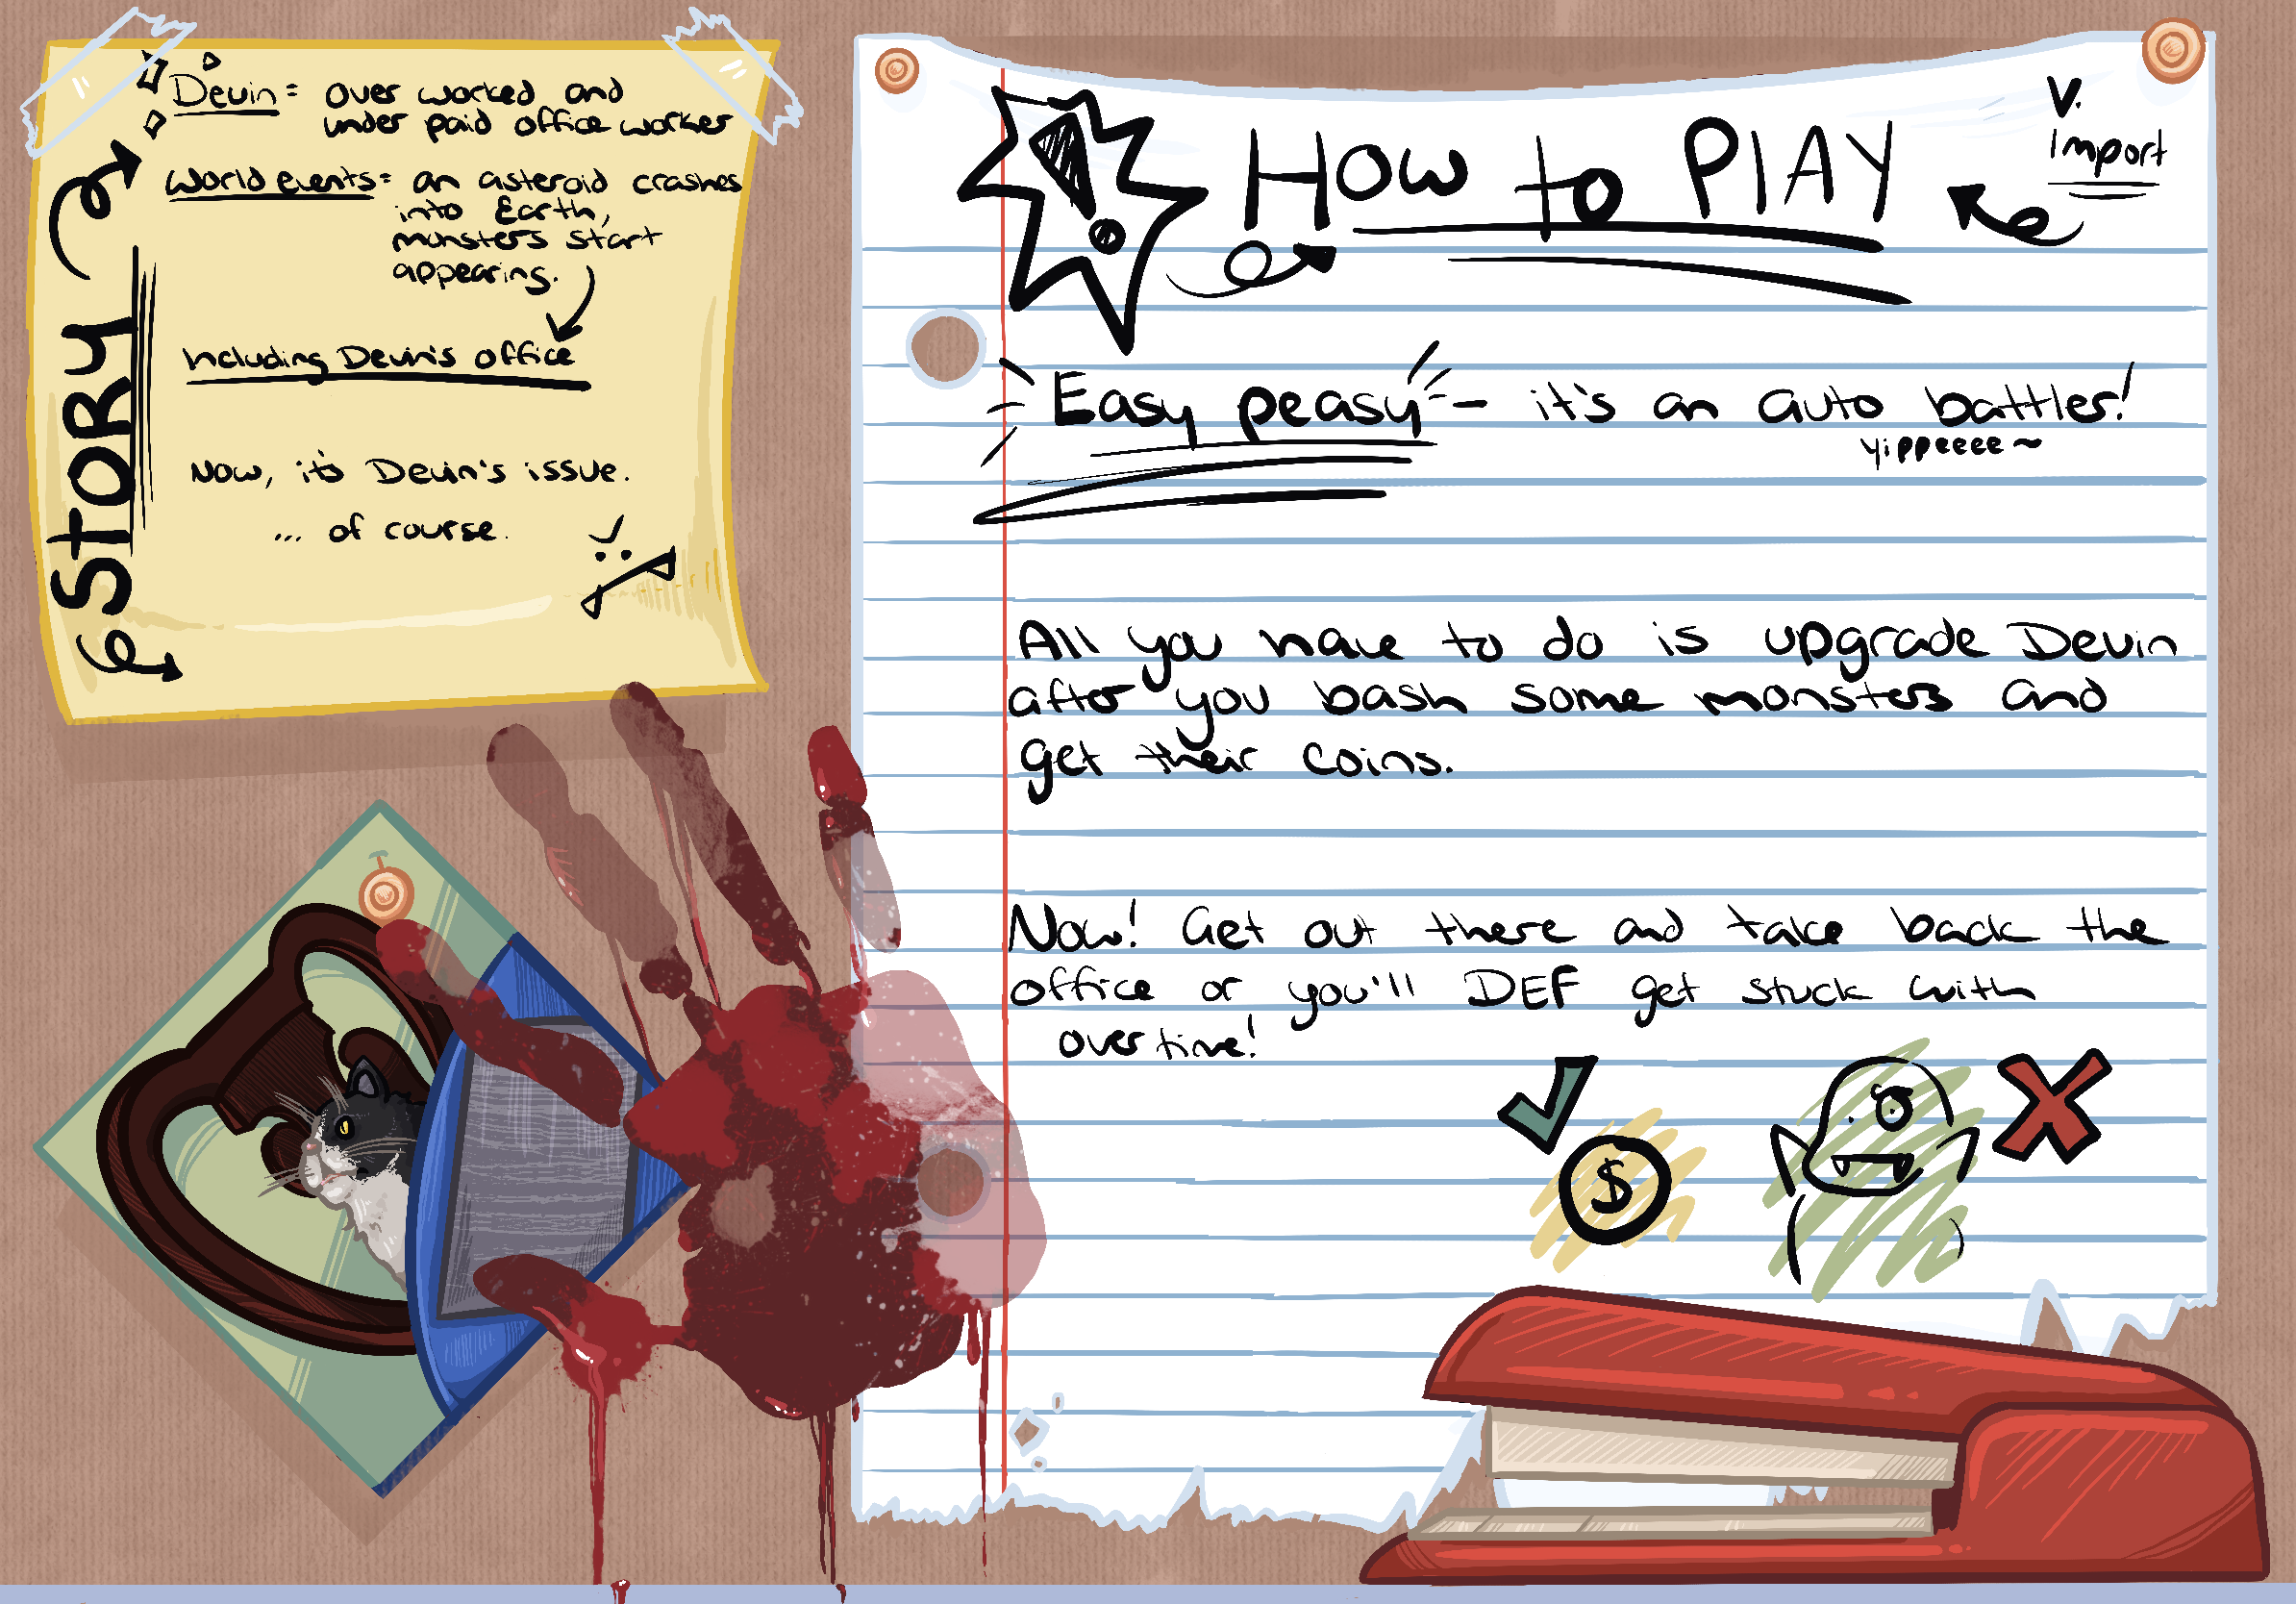 STORY
Devin = over worked and
under paid office worker
World events = an asteroid crashes
into Earth,
monsters start
appearing.
Including Devin's office
Now, it's Devin's issue.
... of course.
! How to PLAY
V.
Import
Easy peasy - it's an auto battler!
yippeeee ~
All you have to do is upgrade Devin
after you bash some monsters and
get their coins.
Now! Get out there and take back the
office or you'll DEF get stuck with
overtime!
$